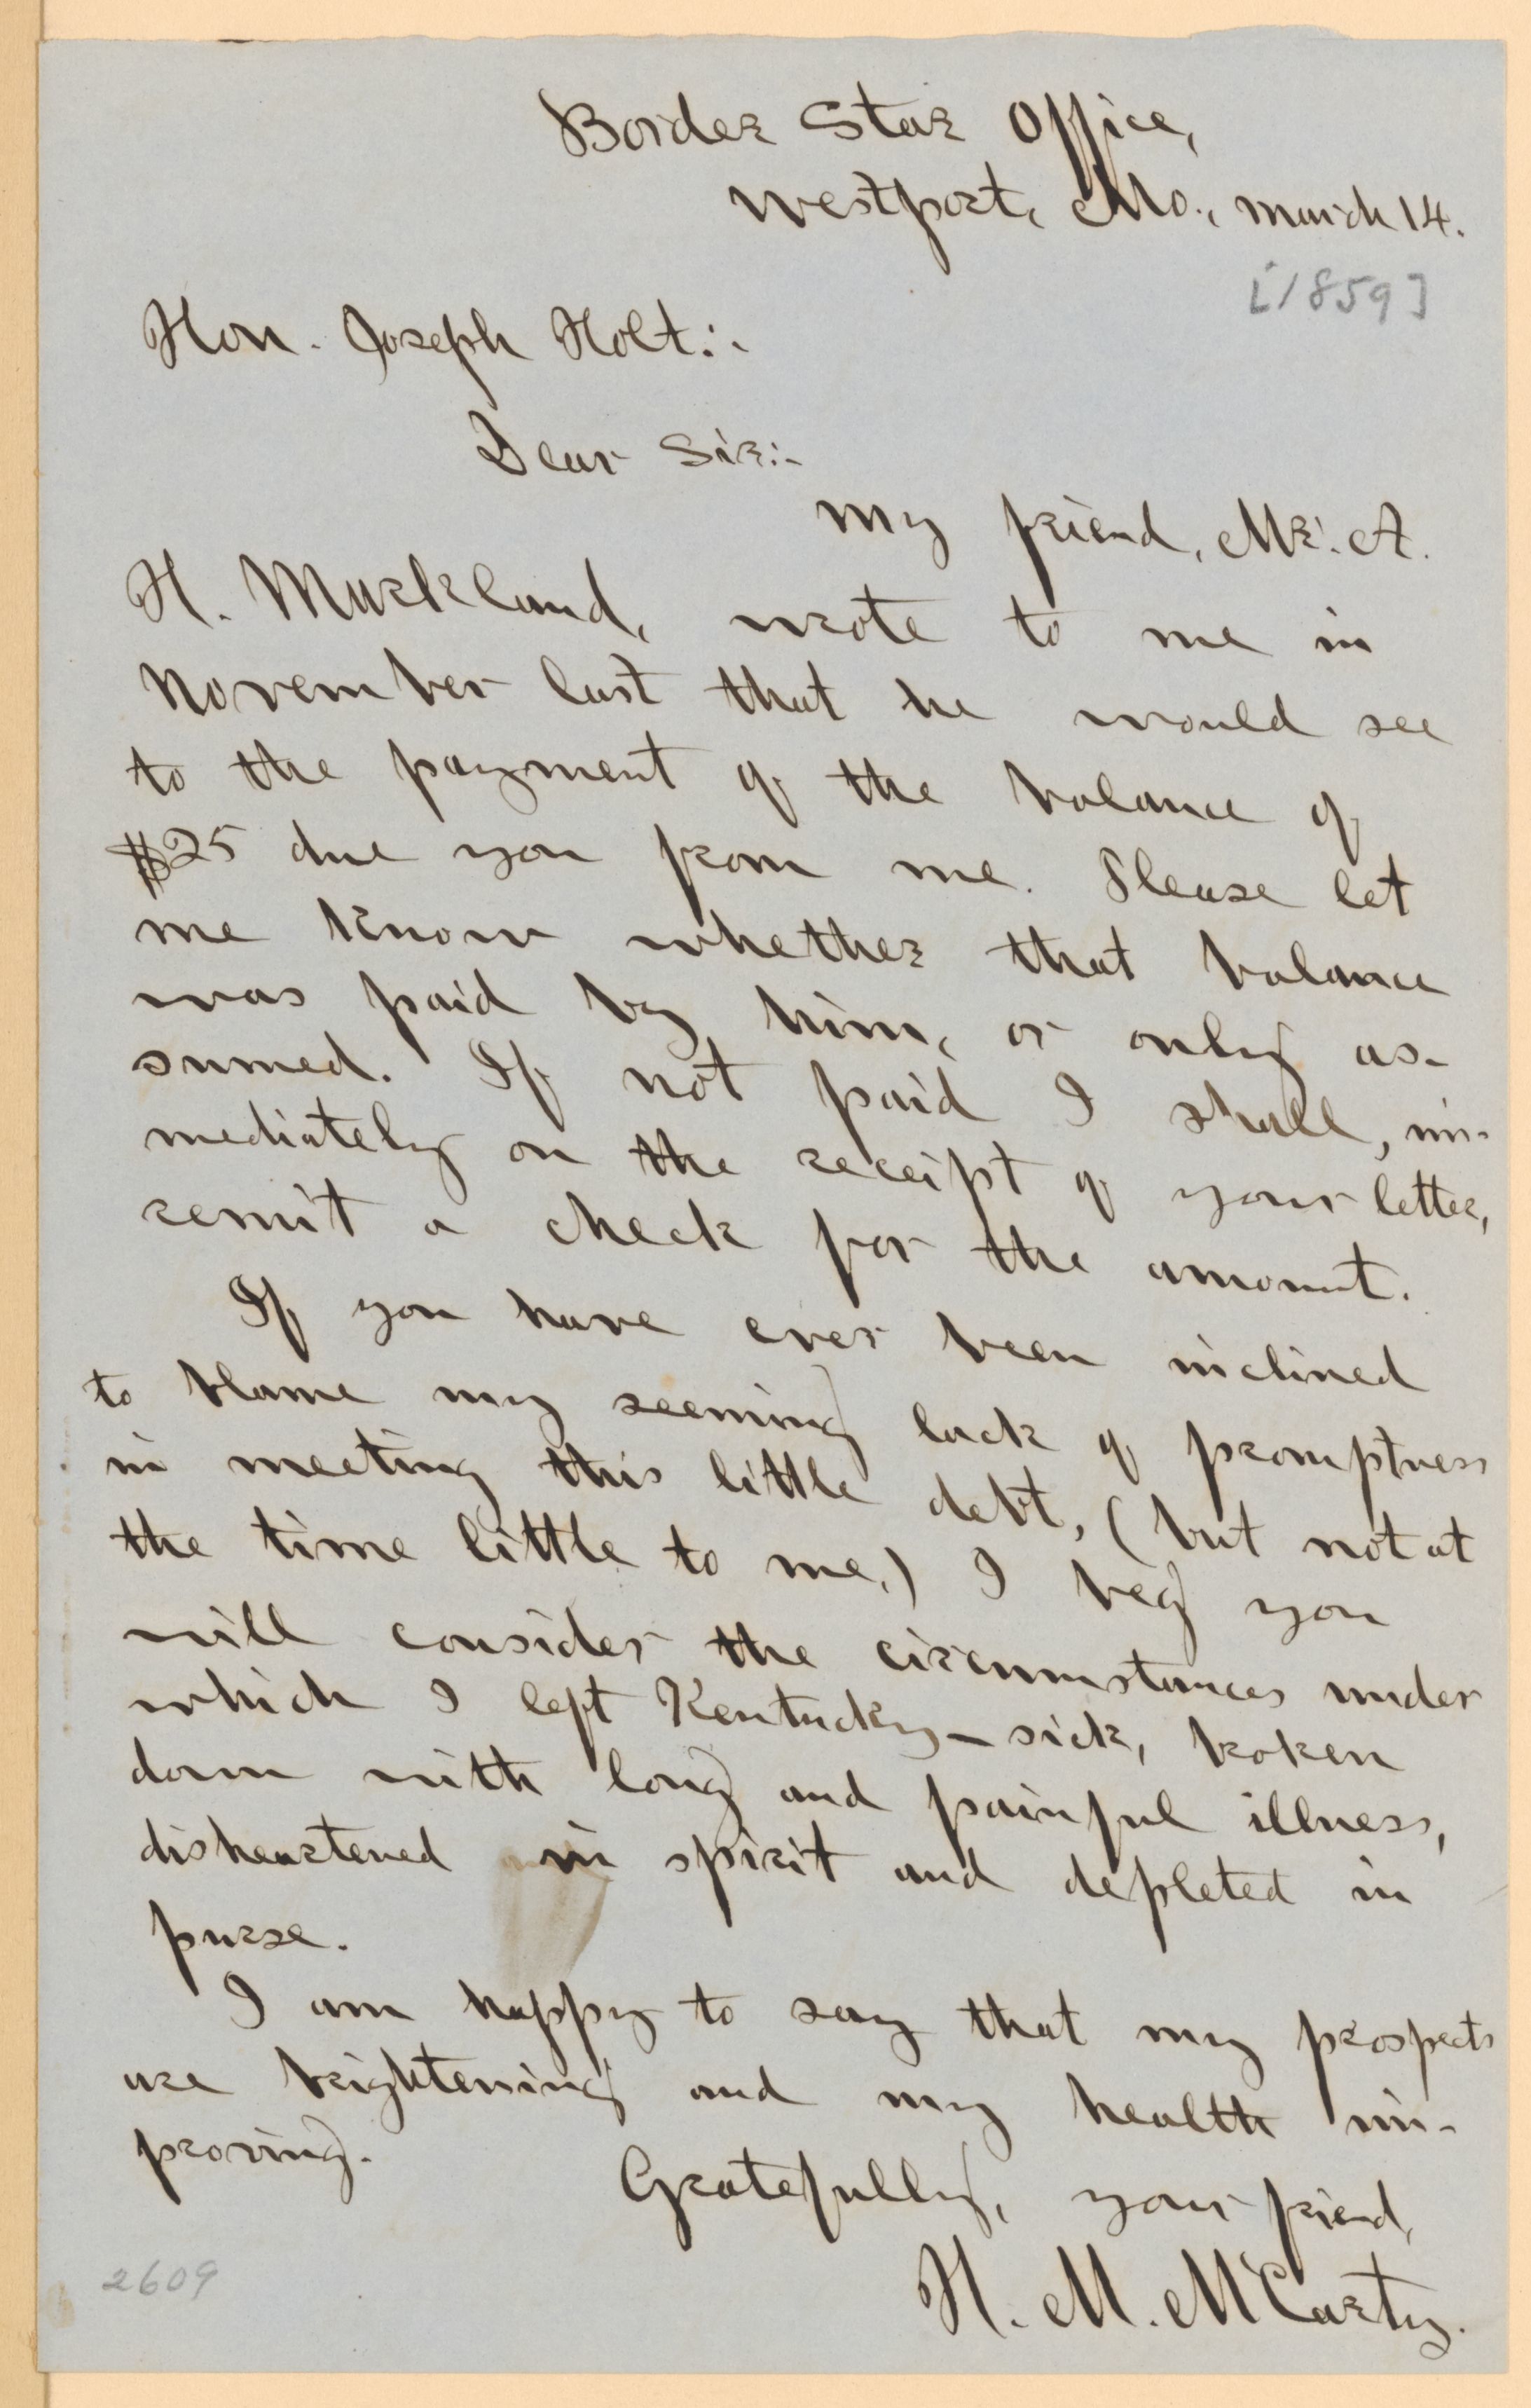 Border Star Office,
Westport, Mo., March 14.
[1859]
Hon. Joseph Holt:-
Dear Sir:-
My friend, Mr. A.
H. Markland, wrote to me in
November last that he would see
to the payment of the balance of
$25 due you from me. Please let
me know whether that balance
was paid by him, or only as-
sumed. If not paid I shall, im-
mediately on the receipt of your letter,
remit a check for the amount.
If you have ever been inclined
to blame my seeming lack of promptness
in meeting this little debt, (but not at
the time little to me,) I beg you
will consider the circumstances under
which I left Kentucky - sick, broken
down with long and painful illness,
disheartened in spirit and depleted in
purse.
I am happy to say that my prospects
are brightening and my health im-
proving.
Gratefully, your friend,
H. M. McCarty.
2609